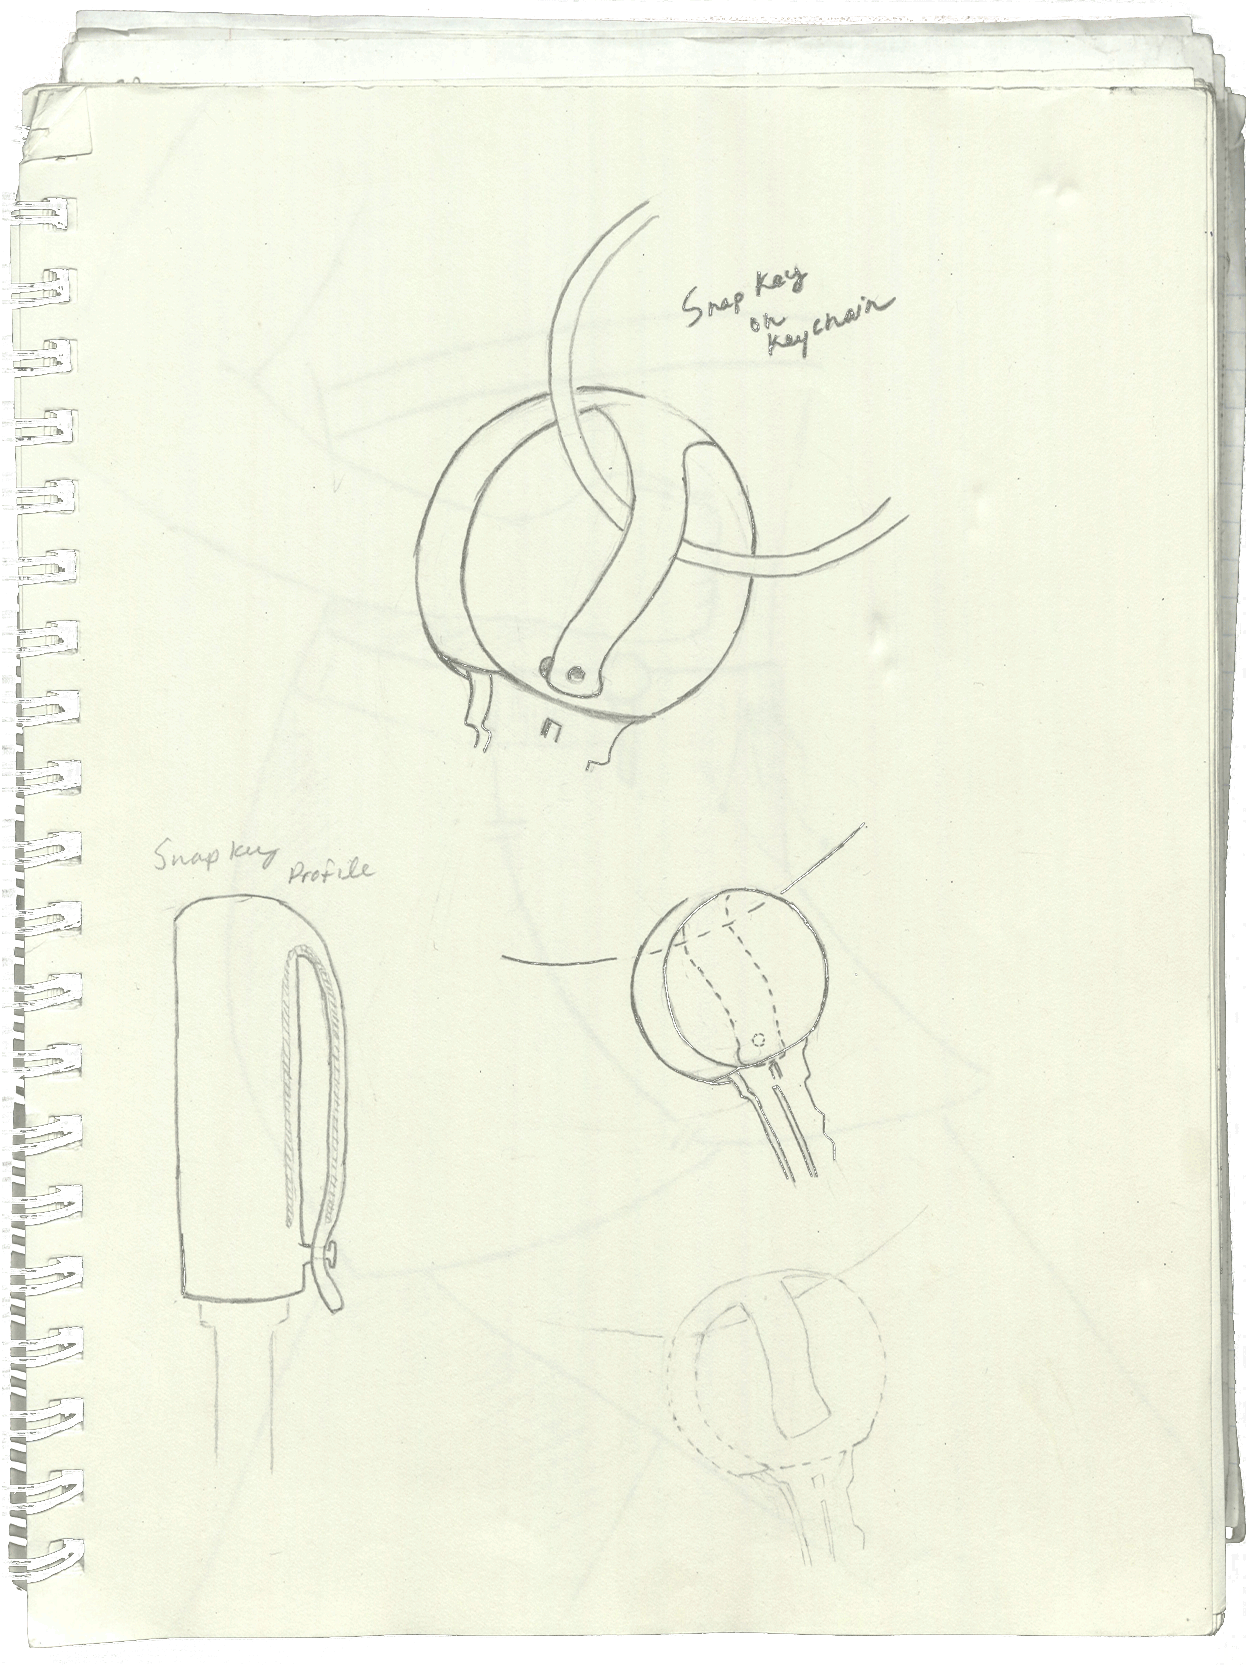 Snap Key
on
Keychain
Snap Key
Profile